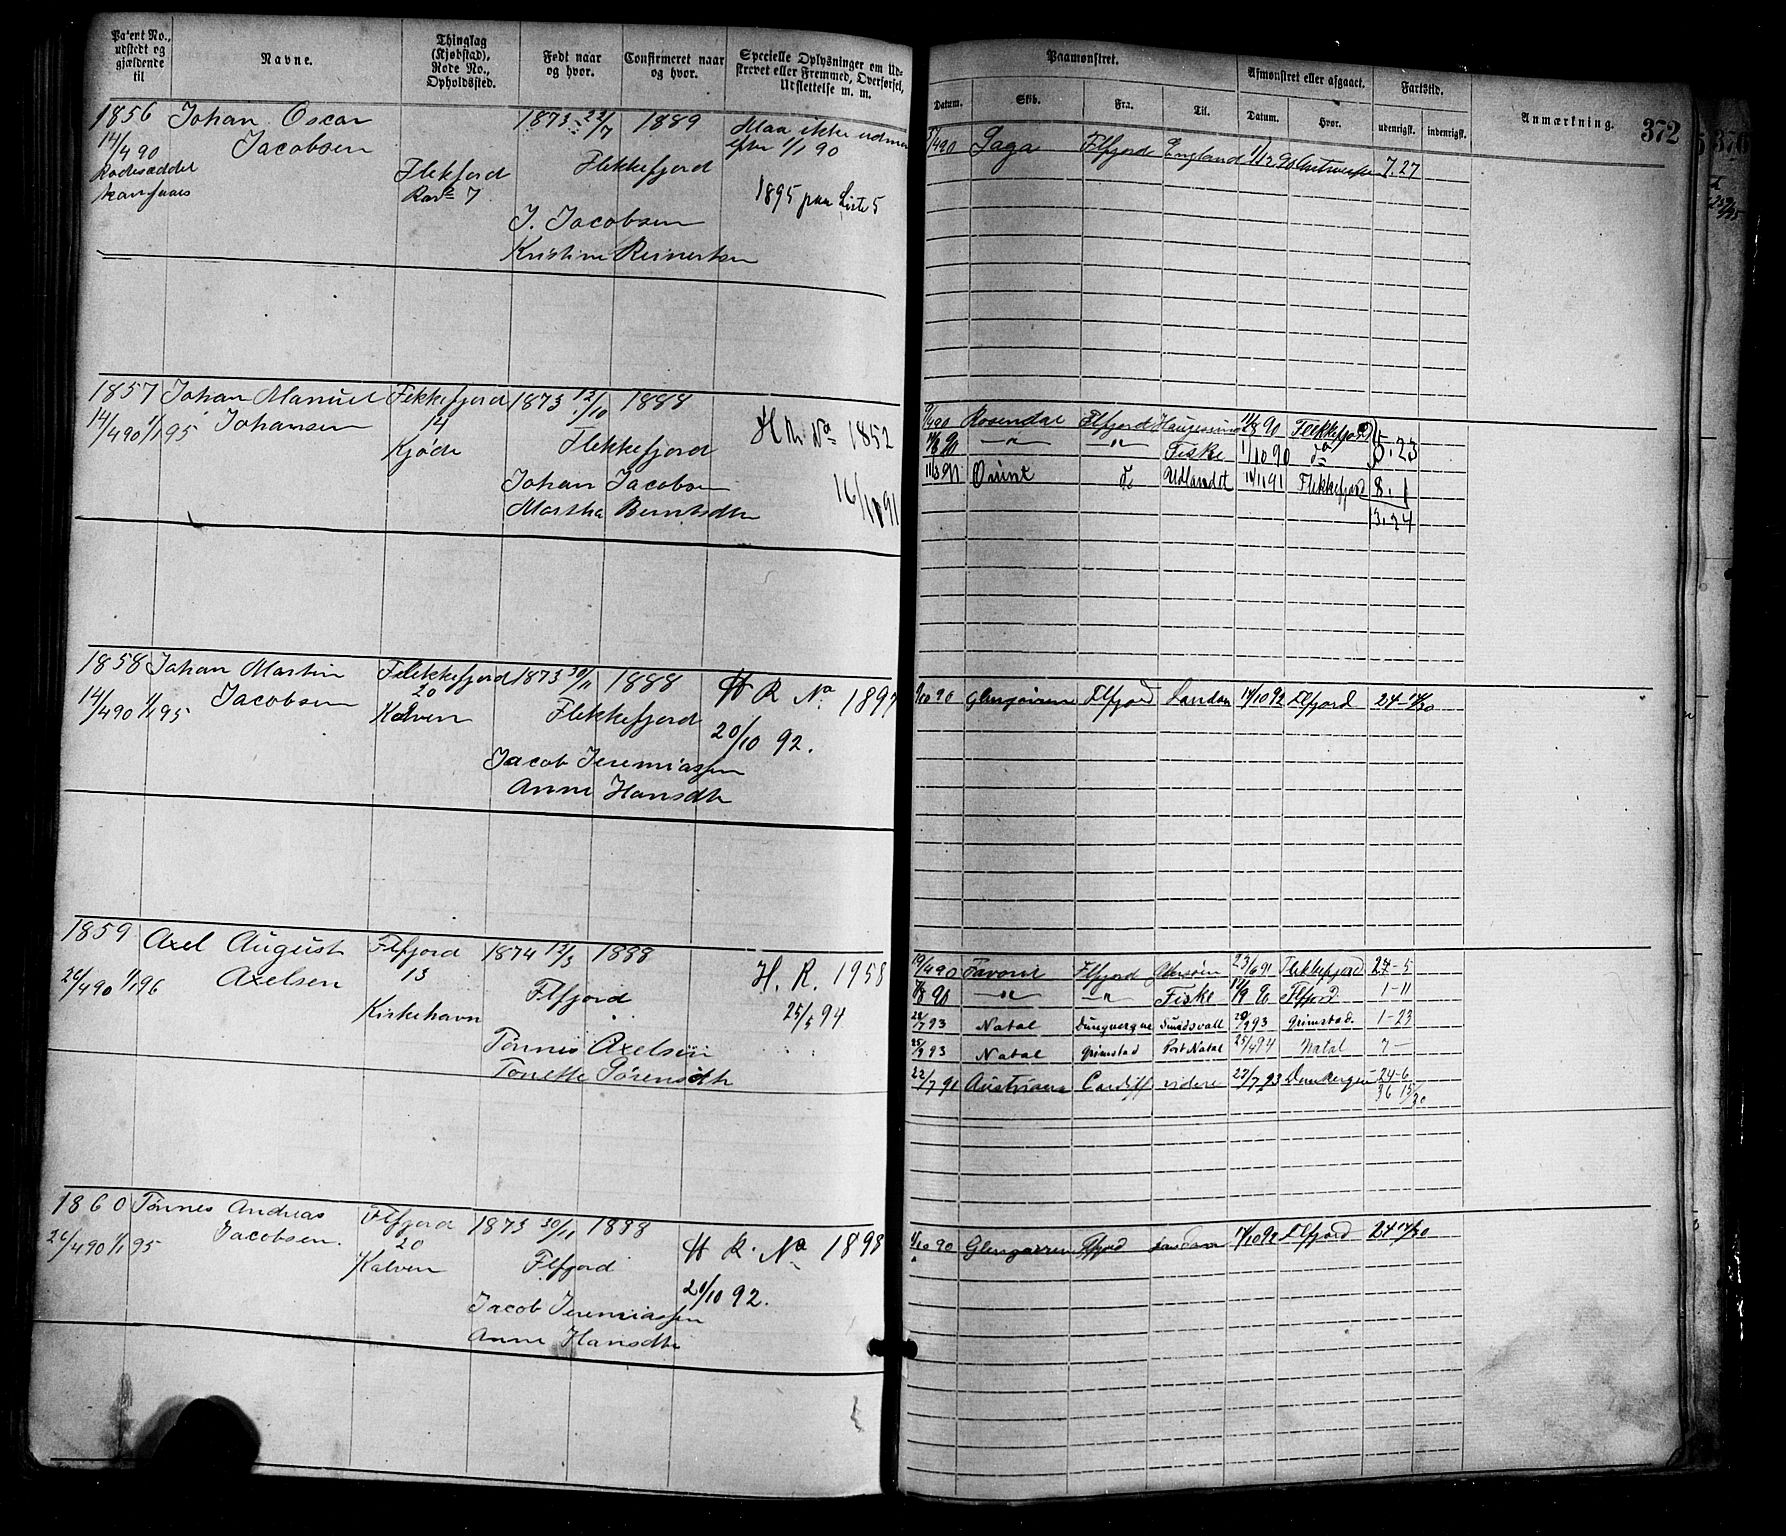 Patent No., udstedt og gjældende til
Navne.
Thinglag (Kjøbstad), Rode No., Opholdssted.
Født naar og hvor.
Confirmeret naar og hvor.
Specielle Oplysninger om Ud-
skrevet eller Fremmed, Overførsel,
Udslettelse m. m.
Paamønstret.
Afmønstret eller afgaaet.
Fartstid.
Anmærkning.
372
376
Datum.
Skib.
Fra.
Til.
Datum.
Hvor.
udenrigsk.
indenrigsk.
1856 Johan Oscar 1873 22/7 1889 Maa ikke udm
14/4 90 Jacobsen efter 1/1 90
Rodesæddel Flekkefjord
kan faaes 7 1895 paa Liste 5
J. Jacobsen
Kristine Reinertsen
490 Saga Flfjord England 1/12 90 Antwerpen 7.27
1857 Johan Manuel Flekkefjord 1873 12/10 1888
14/4 90 1/1 95 Johansen 14 H R No 1852
Kjøde Flekkefjord
Johan Jacobsen 16/11 91
Martha Berntsdtr
9/4 90 Rosendal Flfjord Haugesund 90 Flekkefjord
90 -"- " Fiske 1/10 90 do 5.23
11/3 91 do Udlandet 14/11 91 Flekkefjord 8.1
13.24
1858 Johan Martin Flekkefjord 1873 30/11 1888
14/4 90 1/1 95 Jacobsen 20 H R No. 1897
Kalven Flekkefjord 20/10 92.
Jacob Jeremiassen
Anne Hansdtr
/10 90 Flfjord London 14/10 92 Flfjord 24-14/30
1859 Axel August Flfjord 1874 12/3 1888
26/4 90 1/1 96 Axelsen 13 H. R. 1958
Kirkehavn Flfjord 25/5 94
Tønnes Axelsen
Tonette Sørensdtr
19/4 90 Favorit Flfjord 23/6 91 Flekkefjord 24-5
7/8 90 -"- -"- Fiske 12/9 90 Flfjord 1-11
28/7 93 Natal Sundsvall 20/9 93 Grimstad. 1-23
25/9 93 Natal Grimstad Port Natal 25/4 94 Natal 7-
22/7 91 Austriana Cardiff videre 27/7 93 24-6
36 15/30
1860 Tønnes Andreas Flfjord 1873 30/11 1888
26/4 90 1/1 95 Jacobsen. 20 H R. No 1898
Kalven Flfjord 20/10 92.
Jacob Jeremiassen
Anne Hansdtr
1/10 90 Flfjord London 14/10 92 Flfjord 24 14/30